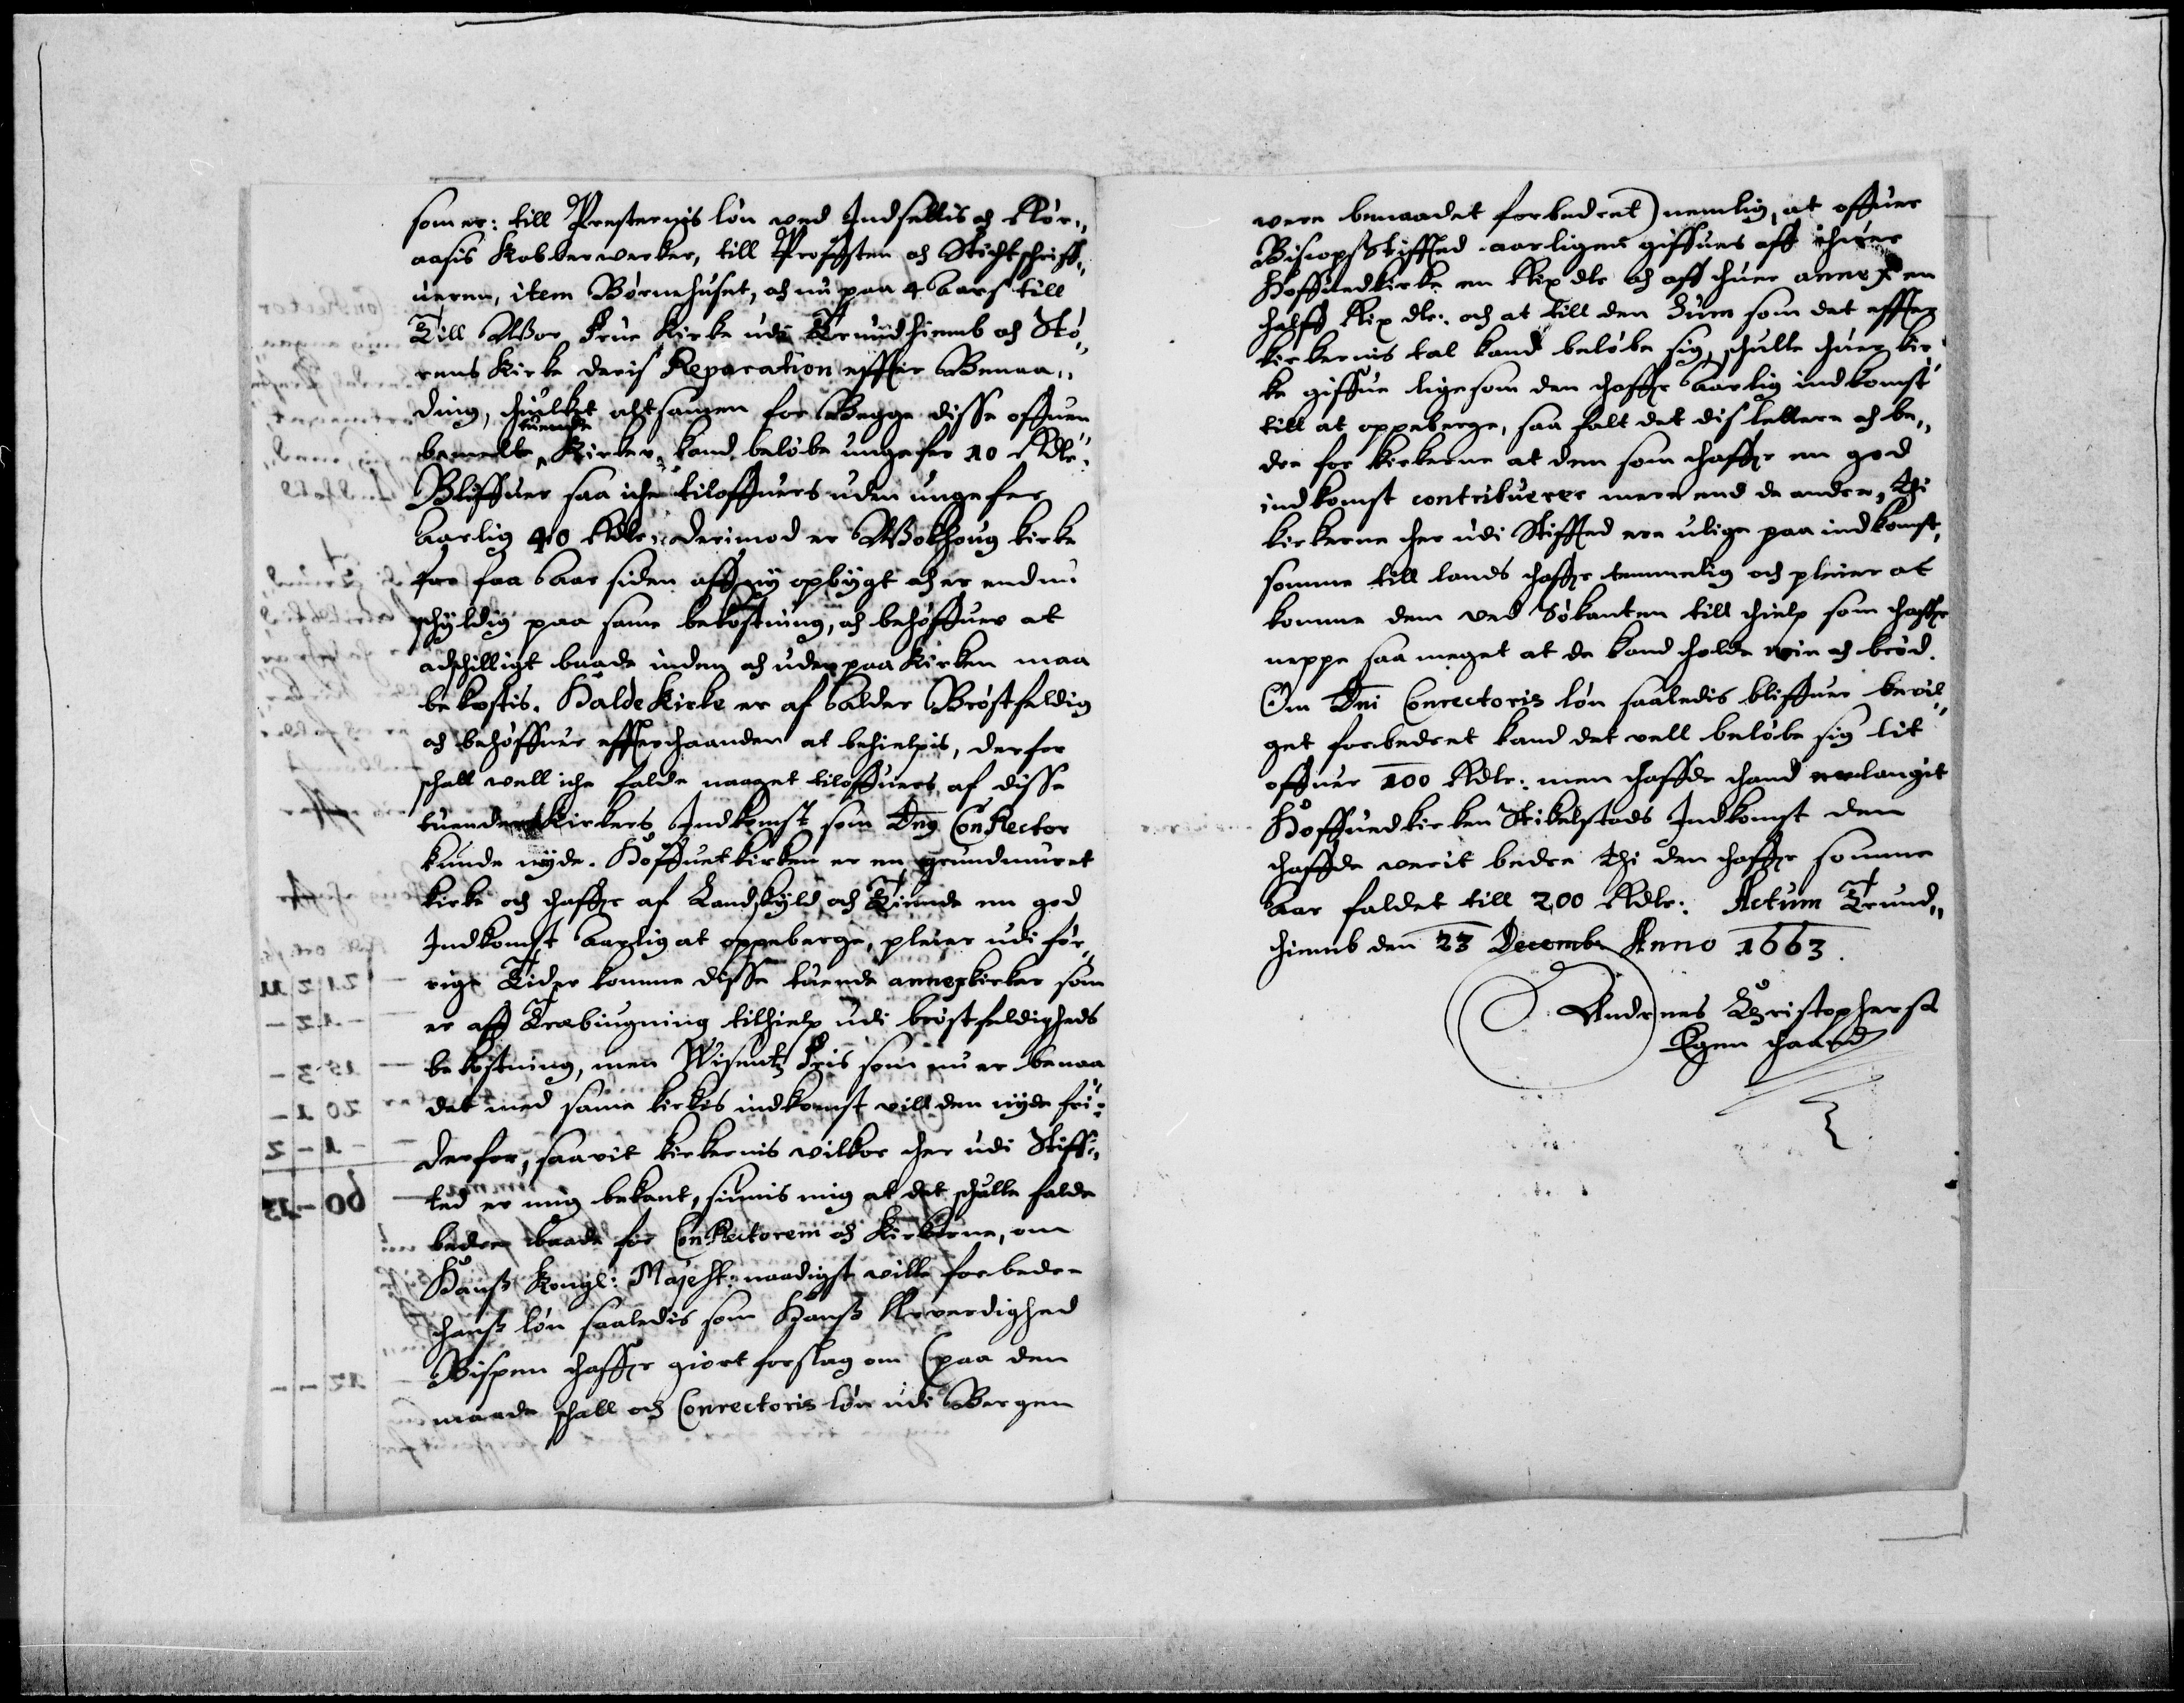 som er: till Presternis løn ved Indsettis och Rør„
aasis Kobberverker, till Profsten och Stichtschriff„
ueren, item Børnehuset, och nu paa 4 Aars till
Till Wor Frue Kirke udi Trundhiemb och Stø„
rens Kirke deris Reparation effter Benaa„
ding, huilket altsamen for Begge disse offuen
bemelte tuende Kirker kand beløbe ungefer 10 Rdlr:
Bliffuer saa iche tiloffuers uden ungefer
Aarlig 40 Rdlr: derimod er Wokhoug kirke
for faa Aar siden aff ny opbygt och er endnu
schyldig paa same bekostning, och behøffuer at
adschilligt baade inden och uden paa Kirken maa
bekostis. Halde Kirke er af Alder Brøstfeldig
och behøffuer effterhaanden at behielpis, derfor
schall well iche falde naaget tiloffuers af disse
tuende Kirkers Indkomst som Dns ConRector
kunde nyde. Hoffuetkirken er en grundmuret
kirke och haffr af Landskyld och Tiende en god
Indkomst Aarlig at oppeberge, pleier udi før„
rige Tider komme disse tuende annexkirker som
er aff Træbiugning tilhielp udi brøstfeldigheds
bekostning, men Wisentz Friis som nu er benaa
det med same kirkis indkomst vill den nyde fri:
derfor, saavit kirkernis vilkor her udi Stiff„
ted er mig bekant, siunis mig at det schulle falde
bedre baade for ConRectorem och Kirkerne, om
Hanß Kongl: Mayestt: naadigst ville forbedre
hanß løn saaledis som Hanß Ærverdighed
Bispen haffr giort forslag om (paa den
maade schall och Conrectoris løn udi Bergen
were benaadet forbedret) nemlig, at offuer
Biscops Stiffted aarligen giffues aff huer
Hoffuedkirke en Rix dlr och aff huer annex en
halff Rix dlr: och at till den Sum som det effter
kirkernis tal kand beløbe sig, schulle huer kir„
ke giffue lige som den haffr Aarlig indkomst
till at oppeberge, saa falt det dis lettere och be„
dre for kirkerne at den som haffr en god
indkomst contribuerer mere end de andre, Thi
kirkerne her udi Stiffted ere ulige paa indkomst,
somme till lands haffr temmelig och pleier at
komme dem ved Søkanten till hielp som haffr
neppe saa meget at de kand holde vin och brød.
Om Dni Conrectoris løn saaledis bliffuer bevil„
get forbedret kand det vell beløbe sig lit
offuer 100 Rdlr: men haffde hand erlangit
Hoffuedkirken Stikelstads Indkomst den
haffde verit bedre Thi den haffr somme
Aar faldet till 200 Rdlr: Actum Trund„
hiemb den 23 Decemb Anno 1663.
Andrues Christophersz
Egen haand